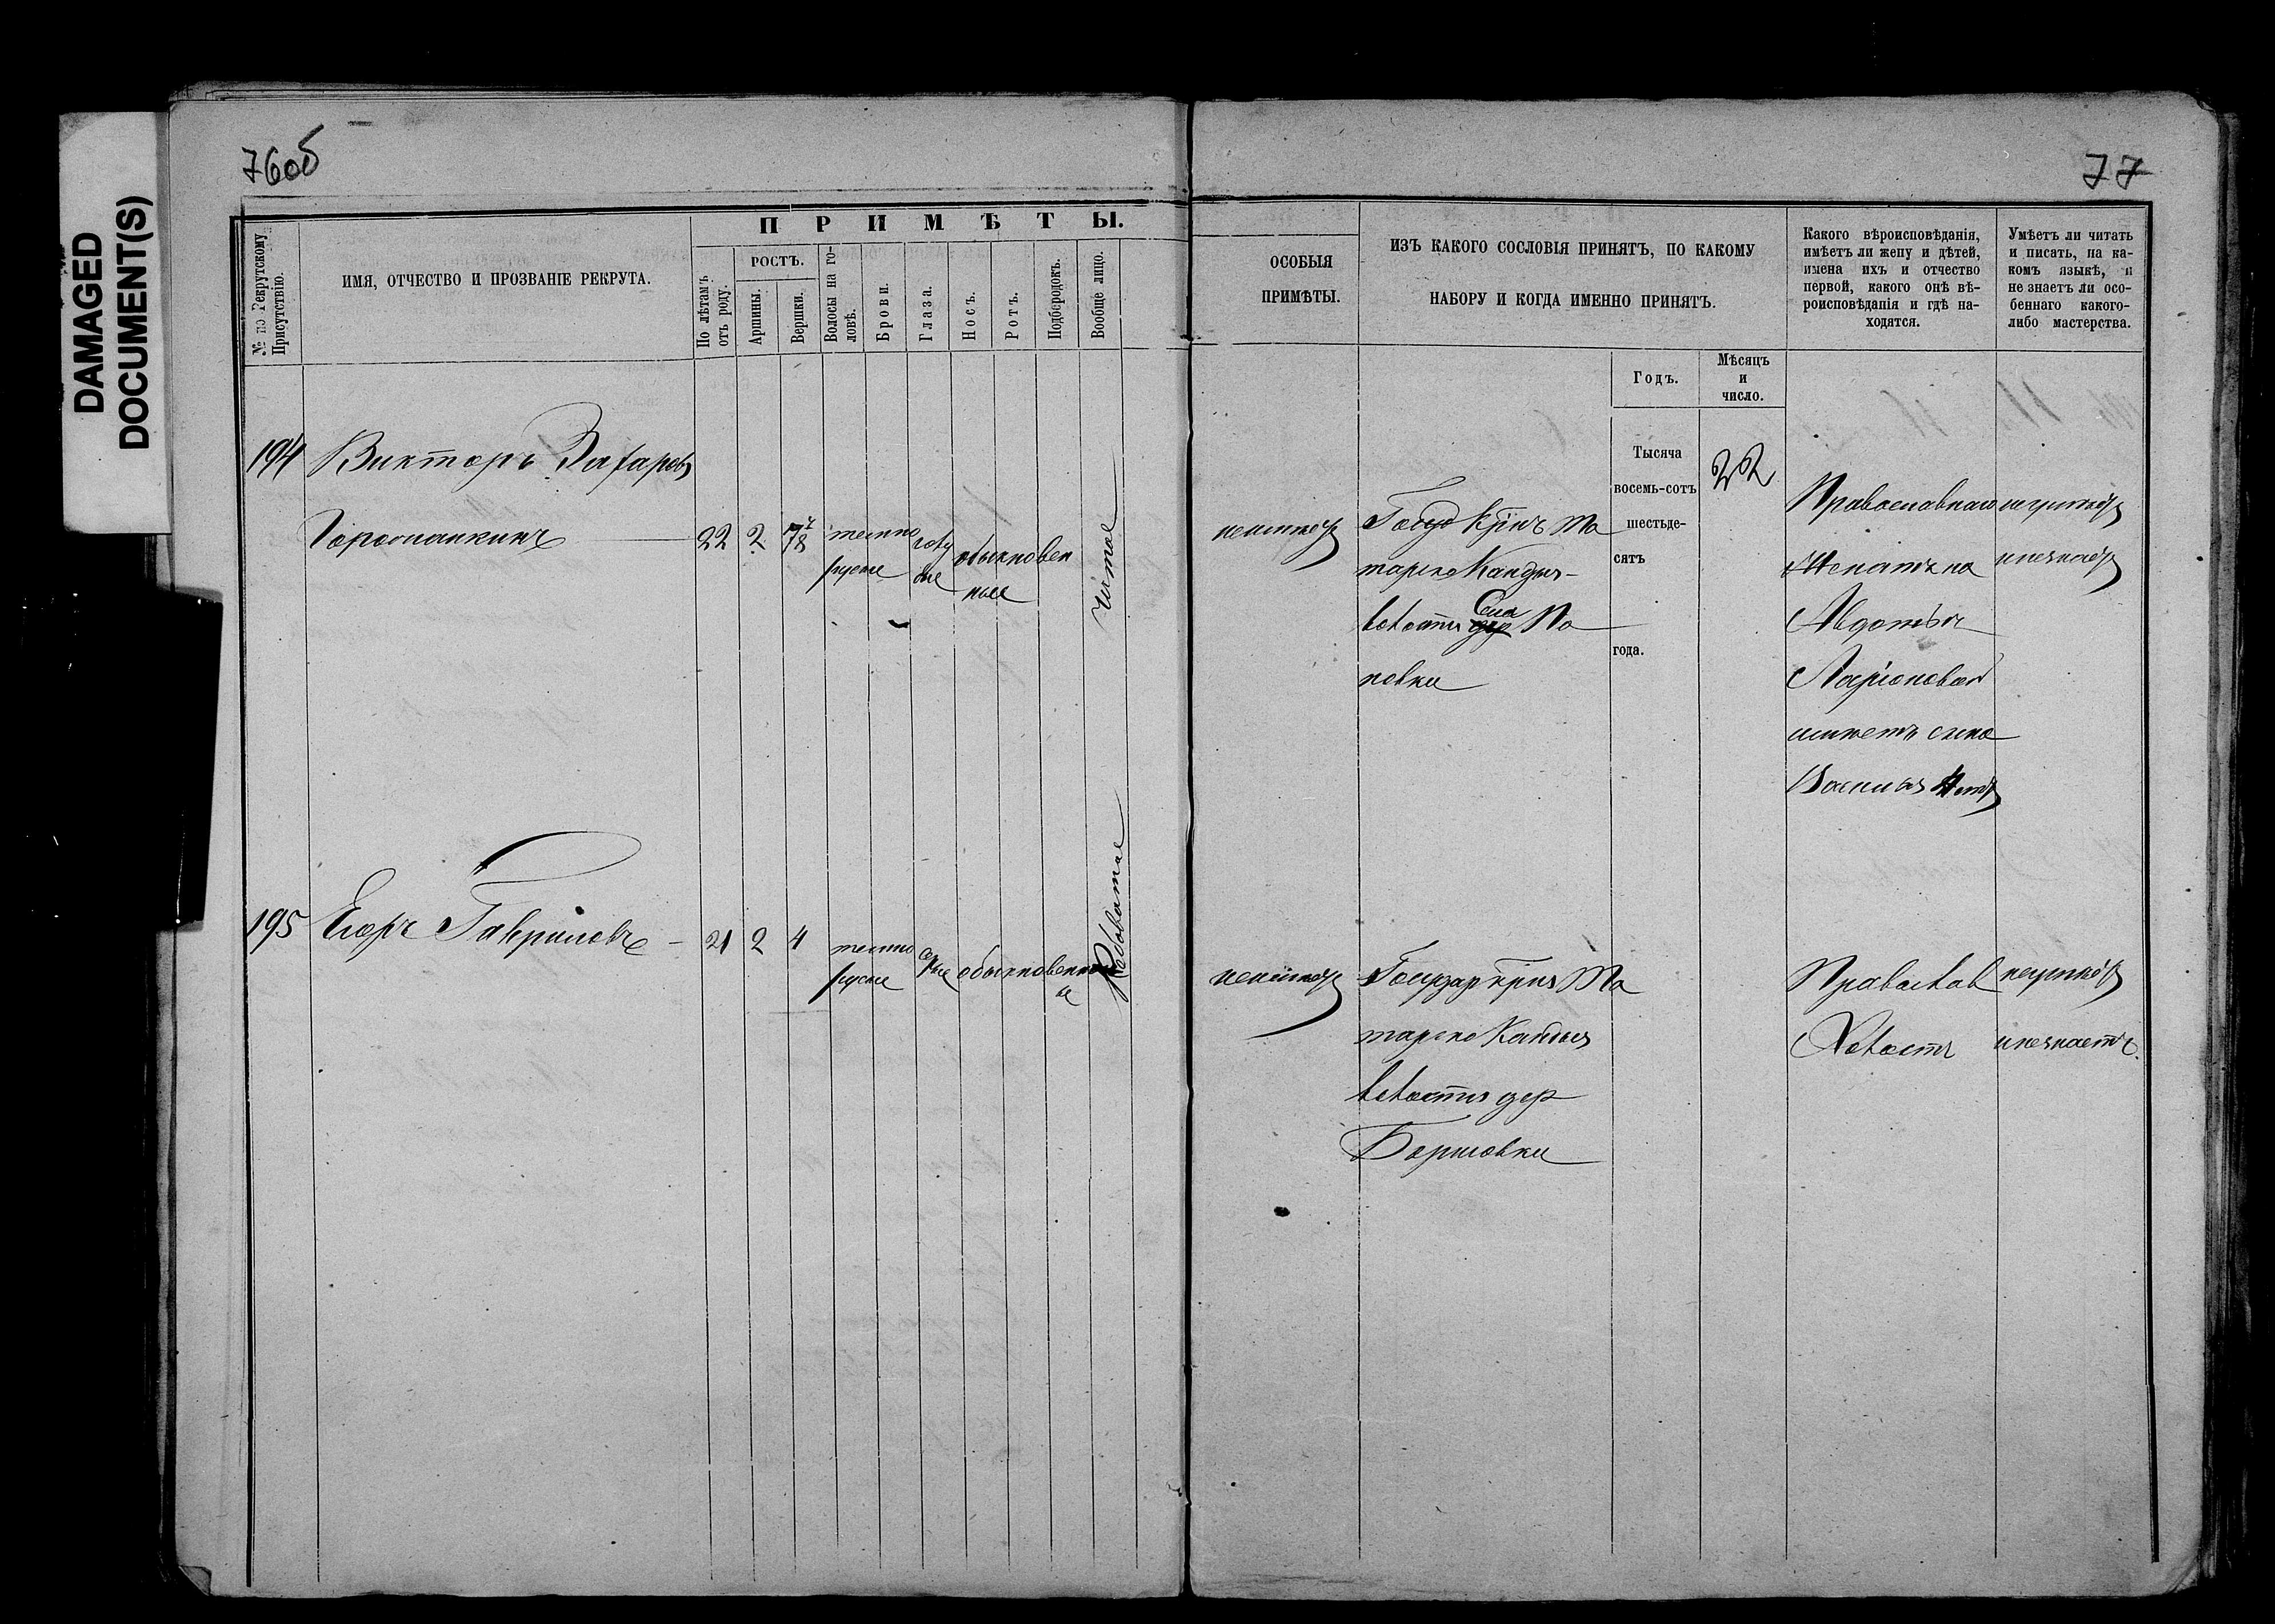 DAMAGED
DOCUMENT(S)
76об
77
ПРИМѢТЫ.
№ по Рекрутскому
Присутствію.
ИМЯ, ОТЧЕСТВО И ПРОЗВАНІЕ РЕКРУТА.
По лѣтамъ
отъ роду.
РОСТЪ.
Аршины.
Вершки.
Волосы на го-
ловѣ.
Брови.
Глаза.
Носъ.
Ротъ.
Подбородокъ.
Вообще лицо.
ОСОБЫЯ
ПРИМѢТЫ.
ИЗЪ КАКОГО СОСЛОВІЯ ПРИНЯТЪ, ПО КАКОМУ
НАБОРУ И КОГДА ИМЕННО ПРИНЯТЪ.
Какого вѣроисповѣданія,
имѣетъ ли жену и дѣтей,
имена ихъ и отчество
первой, какого онѣ вѣ-
роисповѣданія и гдѣ на-
ходятся.
Умѣетъ ли читать
и писать, на ка-
комъ языкѣ, и
не знаетъ ли осо-
беннаго какого-
либо мастерства.
Годъ.
Мѣсяцъ
и
число.
Тысяча
восемь-сотъ
шестьде-
сятъ
года.
22
194 Викторъ Захаровъ
22 2
темно
русые
голу
бые
обыкновен
ные
чистое
неимѣетъ
Госуд Крнъ Та
тарскоКанды
волости Села По
повки
Православнаго
Женатъ на
Авдотьи
Ларіоновой
имѣетъ сына
Василья
неумѣетъ
и незнаетъ
195 Егоръ Гавриловъ
21 2 4
темно
русые
серые
обыкновенны
е
Рябоватое
неимѣетъ
Государ крня Та
тарско Канды
волости дер
Борисовки
Православ
Холостъ
неумѣетъ
и незнаетъ.